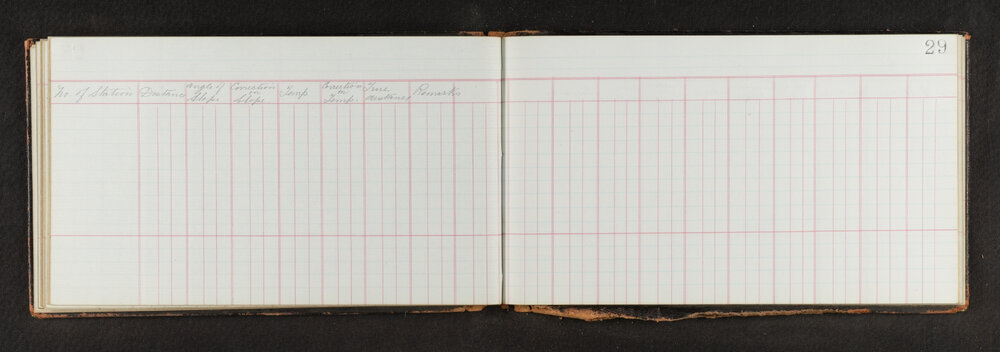 29
No. of Station Distance Angle of Slope Correction in Slope Temp Correction in Temp. True distance Remarks